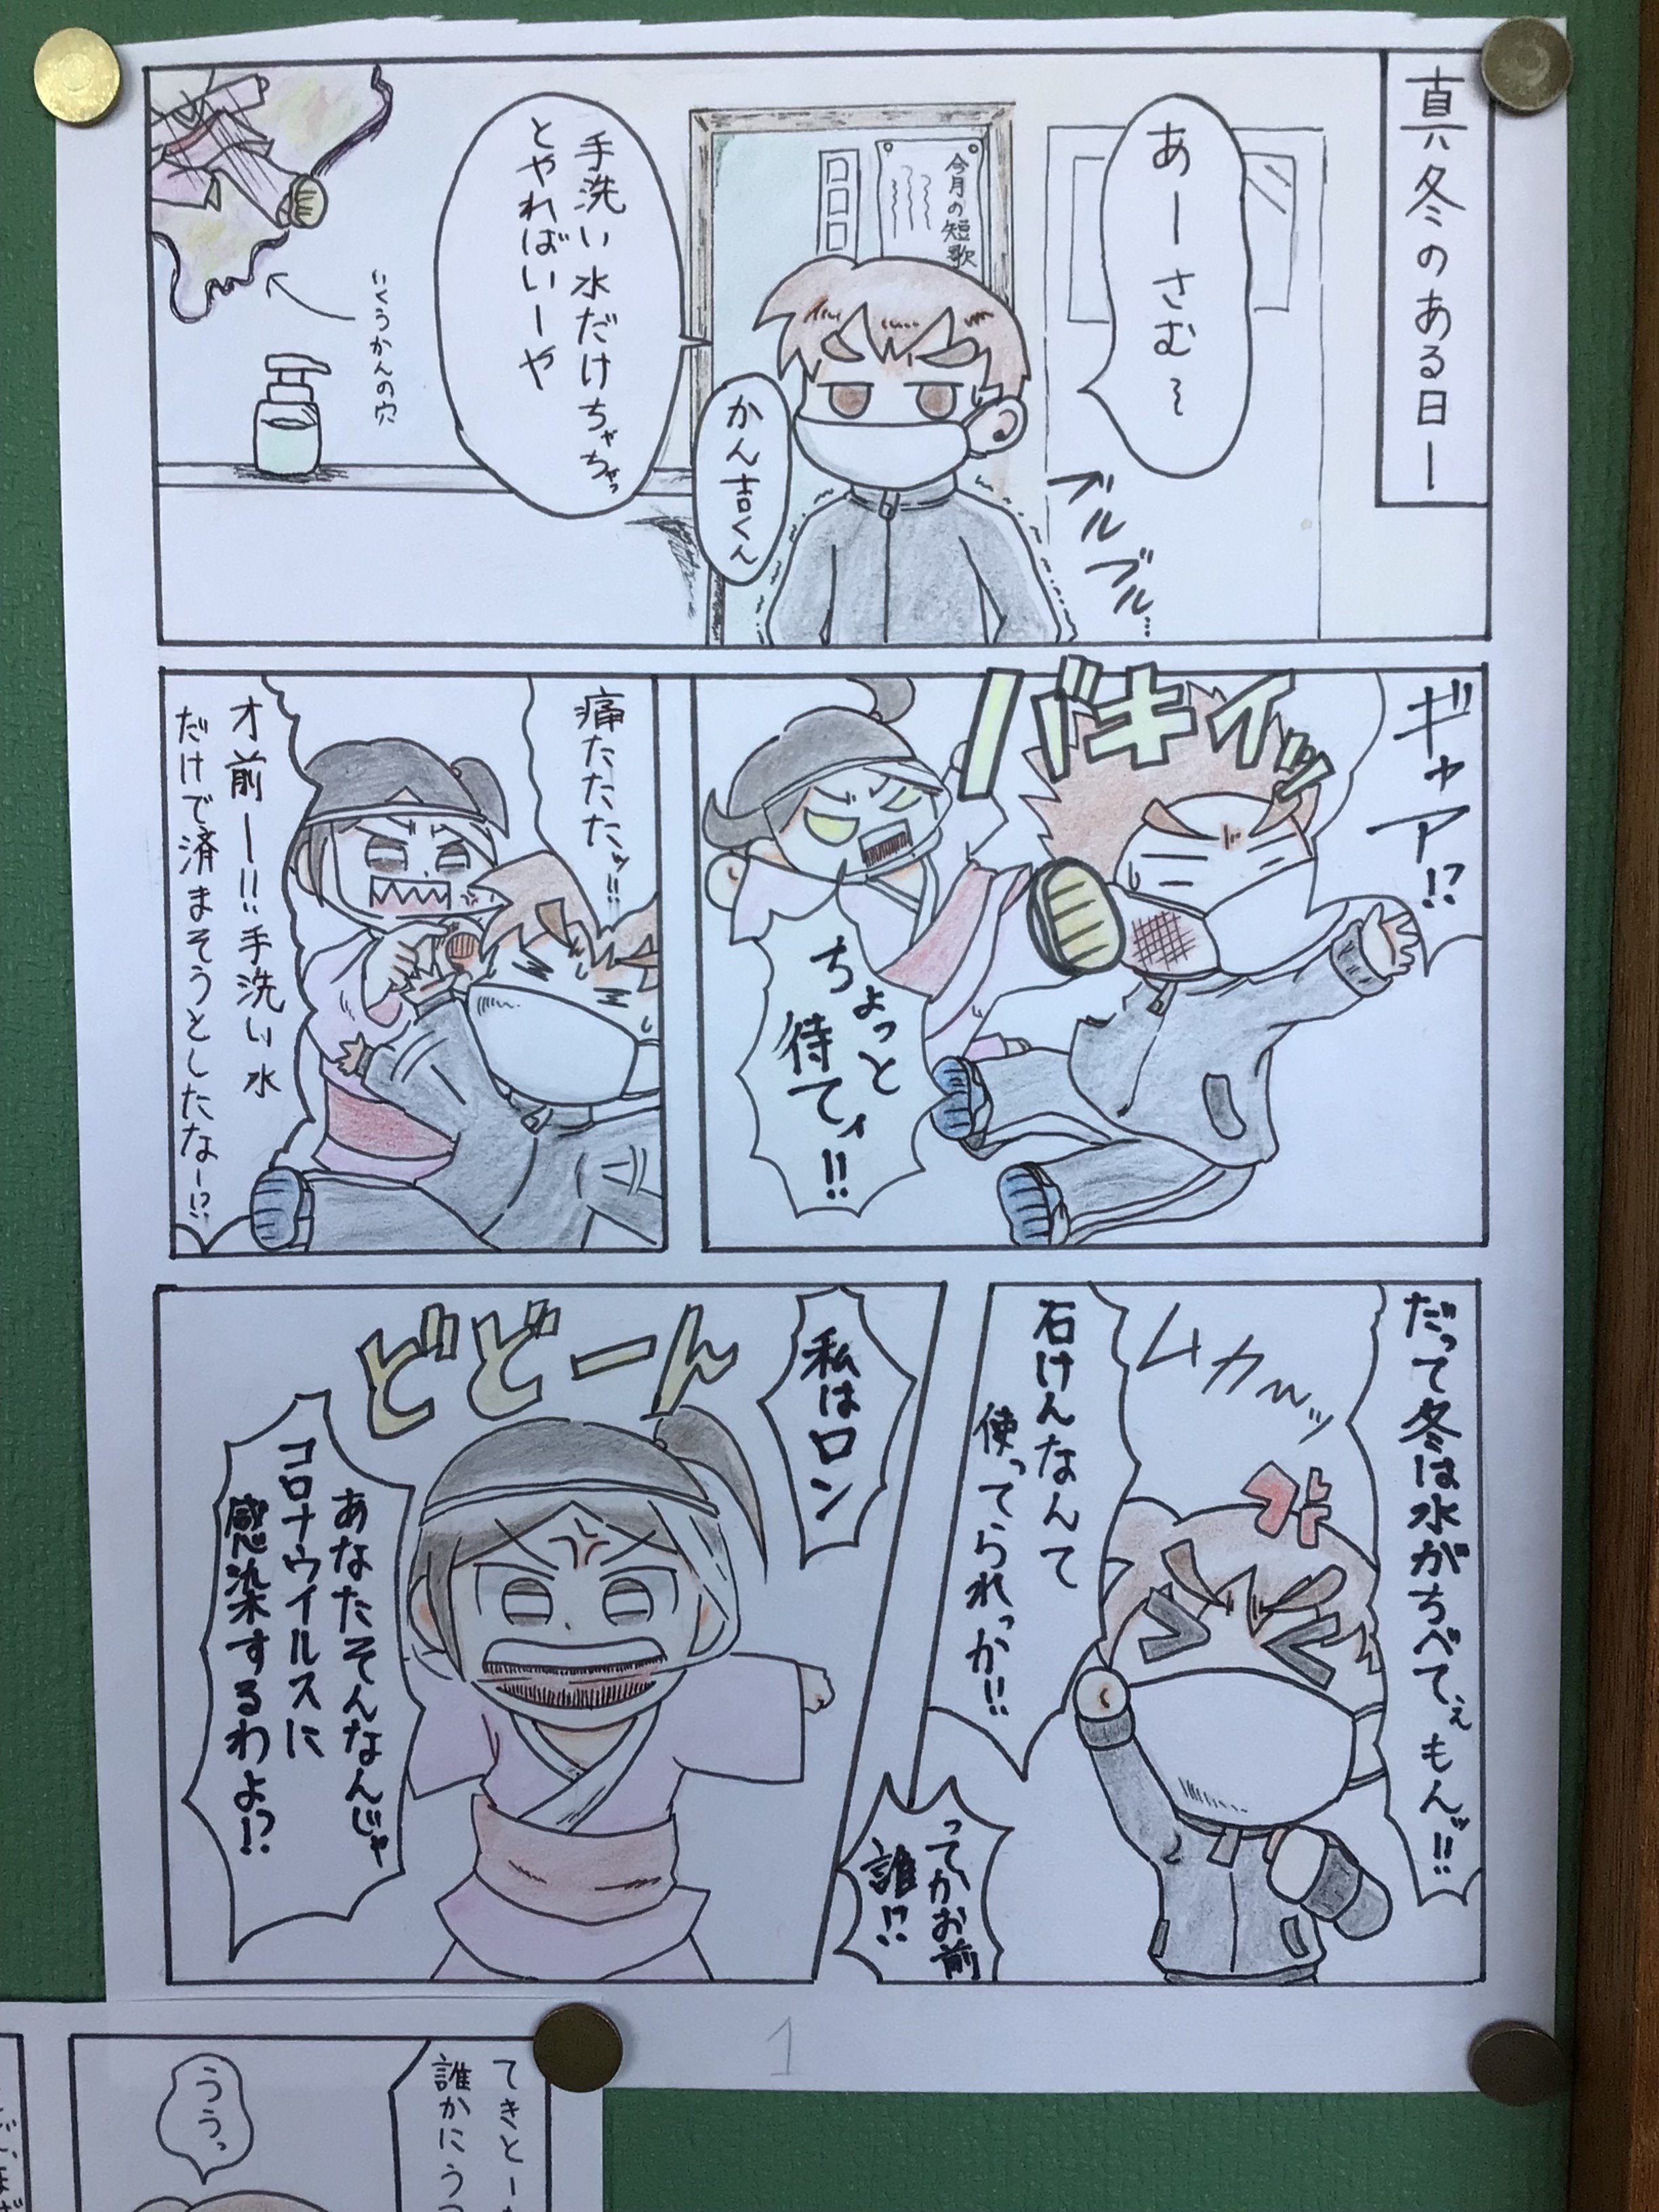 真冬のある日ー
あーさむ〜
今月の短歌
ブルブル…
かん吉くん
手洗い水だけちゃちゃっ
とやればいーや
いくうかんの穴
ギャア!?
バキィッ
ちょっと
待てィ!!
痛たたたッ!!
オ前ー!!手洗い水
だけで済まそうとしたなー!?
だって冬は水がちべてぇもんッ!!
ムカーッ
石けんなんて
使ってられっか!!
ってかお前
誰!?
私はロン
どどーん
あなたそんなんじゃ
コロナウイルスに
感染するわよ!?
1
てきとー
誰かにう
ううっ